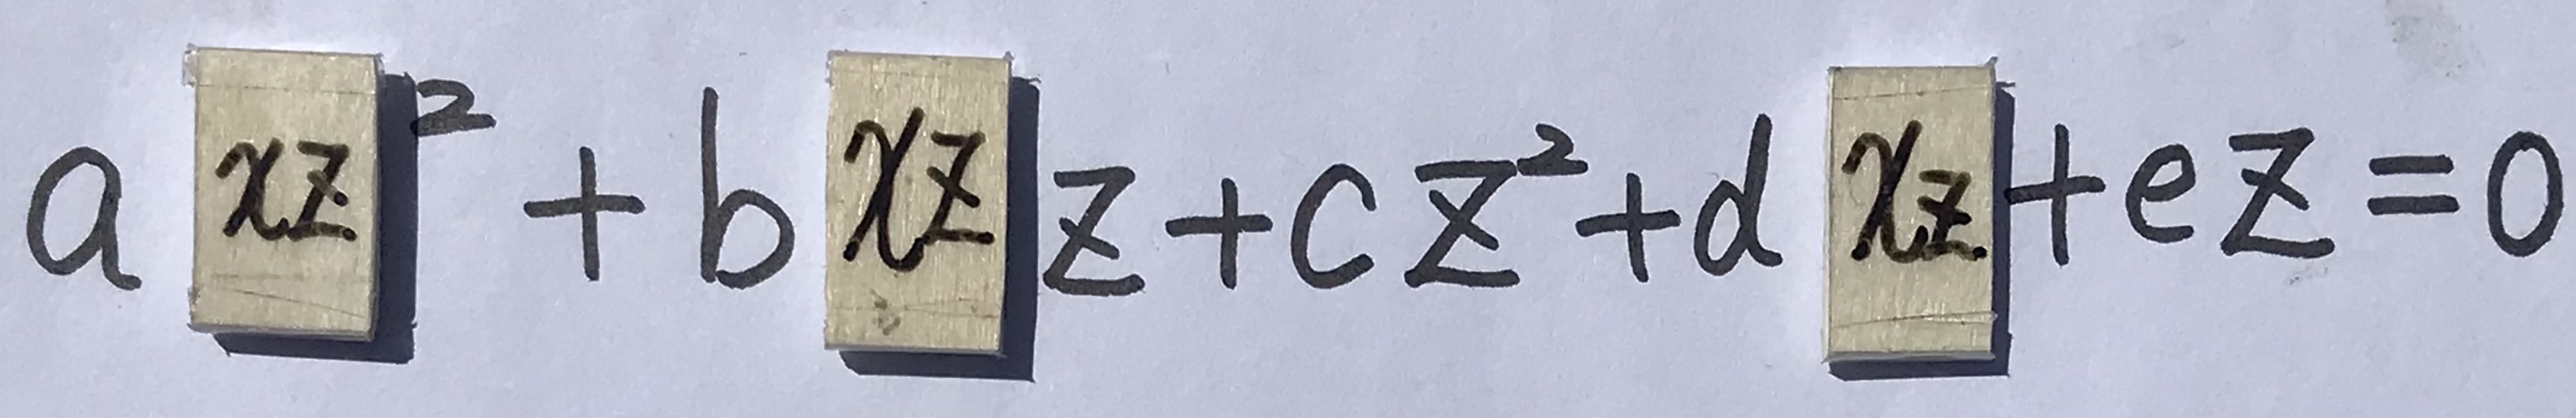 a xz ² + b xz z + c z² + d xz + e z = 0